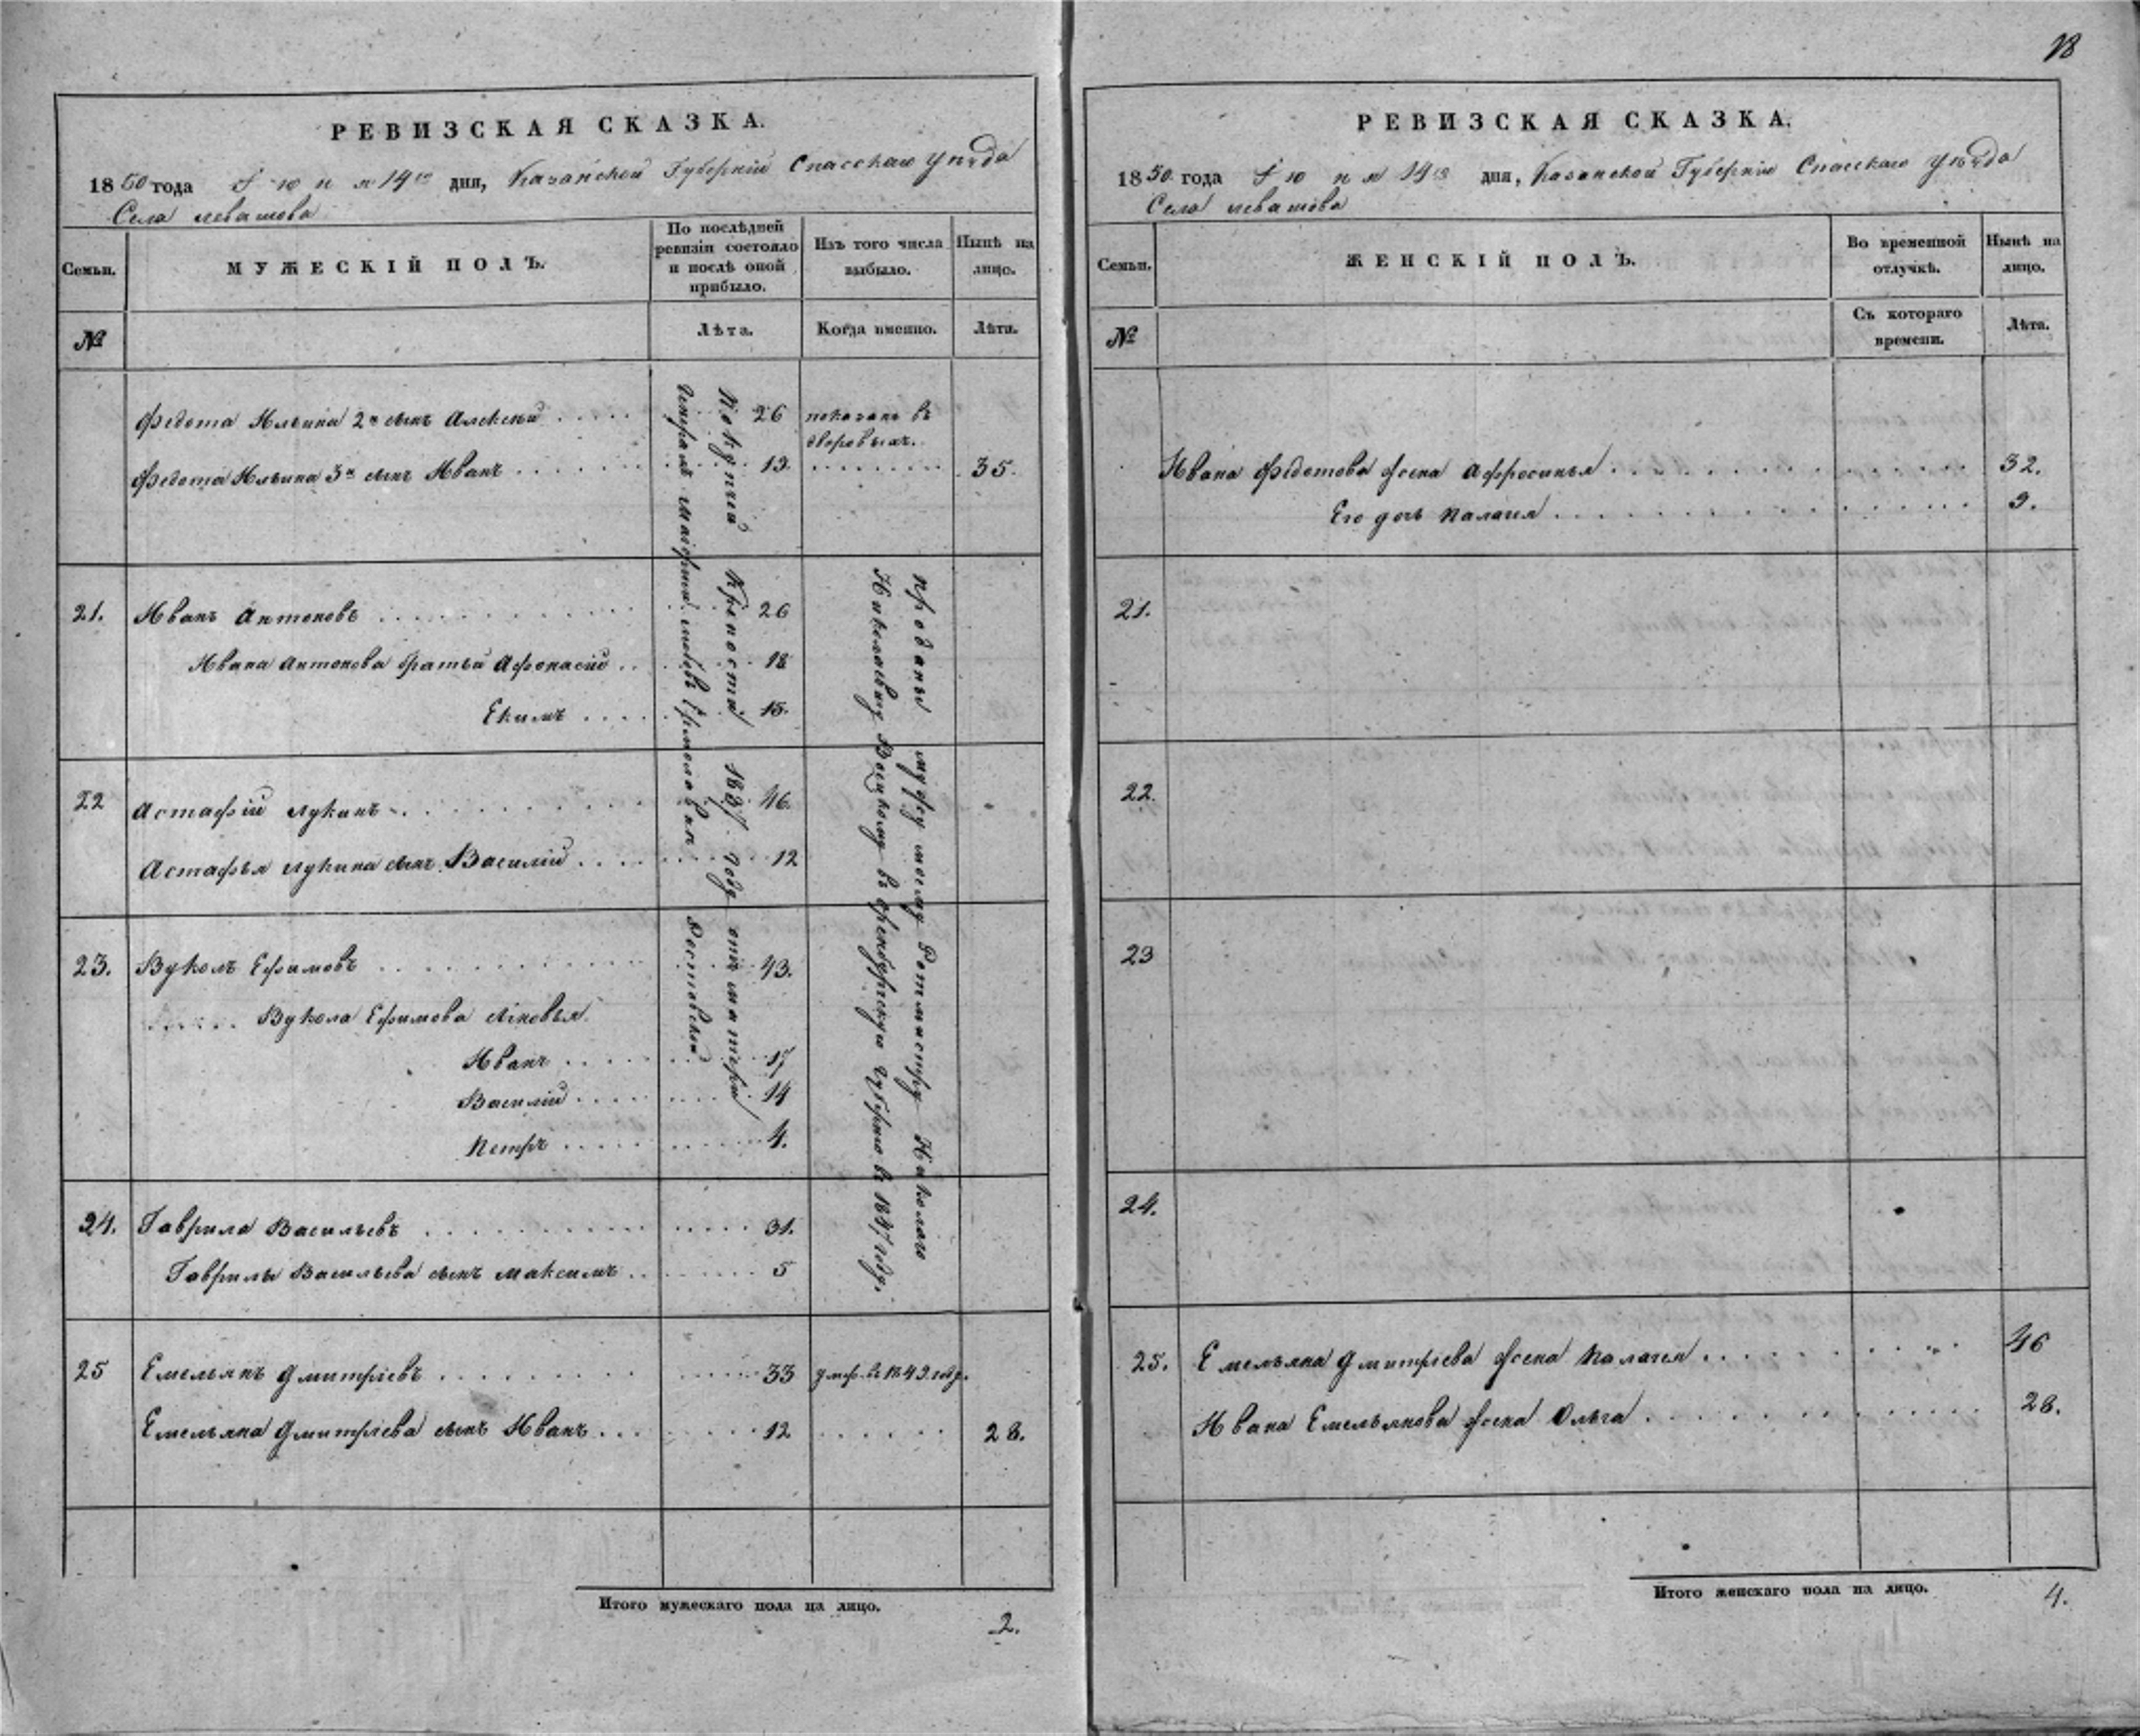 РЕВИЗСКАЯ СКАЗКА.
1850 года Іюня 14го дня, Казанской Губерніи Спасскаго уѣзда
Села Левашова
Семьи.
МУЖЕСКІЙ ПОЛЪ.
По послѣдней ревизіи состояло и послѣ оной прибыло.
Изъ того числа выбыло.
Нынѣ на лицо.
№
Лѣта.
Когда именно.
Лѣта.
Федота Ильина 2й сынъ Алексѣй 26 показанъ въ дворовыхъ.
Федота Ильина 3й сынъ Иванъ 19. 35.
21. Иванъ Антоновъ 26
Ивана Антонова братья Афонасій 18
Екимъ 15.
22 Астафій Лукинъ 46.
Астафья Лукина сынъ Василій 12
23. Вуколъ Ефимовъ 43.
Вукола Ефимова сыновья
Иванъ 17
Василій 14
Петръ 4.
24. Гаврила Васильевъ 31.
Гаврилы Васильева сынъ Максимъ 5
25 Емельянъ Дмитріевъ 33 умер. въ 1849 году.
Емельяна Дмитріева сынъ Иванъ 12 28.
Покупной крѣпости 1837 году отъ матери
Генералъ маіорши Ермоловны Ростовской
проданы мужу моему Ротмистру Николаю
Николаевичу въ Оренбургскую губернію въ 1847 году.
Итого мужескаго пола на лицо.
2.
18
РЕВИЗСКАЯ СКАЗКА.
1850 года Іюня 14го дня, Казанской Губерніи Спасскаго уѣзда
Села Левашова
Семьи.
ЖЕНСКІЙ ПОЛЪ.
Во временной отлучкѣ.
Нынѣ на лицо.
№
Съ котораго времени.
Лѣта.
Ивана Федотова жена Афросинья 32.
Его дочь Палагея 9.
21.
22.
23
24.
25. Емельяна Дмитріева жена Палагея 46
Ивана Емельянова жена Ольга 28.
Итого женскаго пола на лицо.
4.